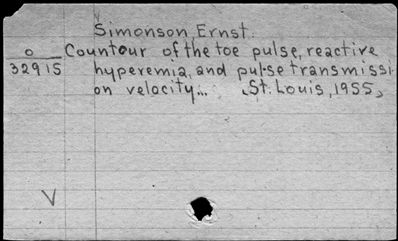 Simonson, Ernst.
o Countour of the toe pulse, reactive
32915 hyperemia, and pulse transmissi-
on velocity... (St. Louis, 1955)
V